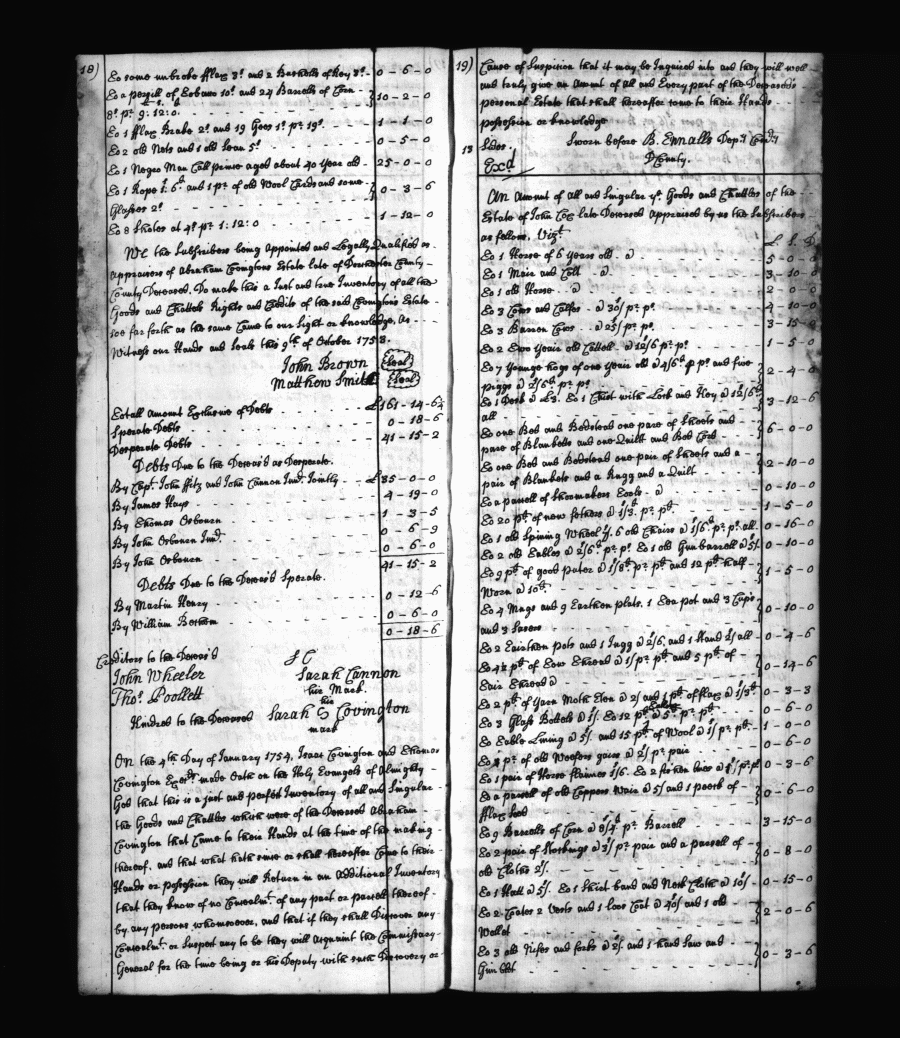 18)
To some unbroke fflax 3s. and 2 Bushells of Rey 3s. - 0 - 6 - 0
To a persill of Tobacco 10s. and 24 Barrells of Corn - - }
8s. pr. £9 : 12 : 0 - - - 10 - 2 - 0
To 1 fflax Brake 2s. and 19 Gees 1s. pr. 19s. - 1 - 1 - 0
To 2 old Nets and 1 old Gun 5s. - - - 0 - 5 - 0
To 1 Negro Man Call prince aged about 40 year old - 25 - 0 - 0
To 1 Rope 1s: 6d and 1 pr. of old Wool Cards and some - }
Glasses 2s. - - - 0 - 3 - 6
To 8 Shotes at 4s. pr. 1 : 12 : 0 - - - 1 - 12 - 0
We the Subscribers being Appointed and Legally Qualified as -
Appraisers of Abraham Covingtons Estate late of Dorchester County -
County Deceased. Do make this a Just and true Inventory of all the
Goods and Chattels Rights and Credits of the said Covingtons Estate -
soe far forth as the same Came to our Sight or knowledge, As - -
Witness our Hands and Seals this 9th of October 1753.
John Brown (Seal)
Matthew Smith (Seal)
Totall Amount Exclusive of Debts - - £161 - 14 - 6¼
Sperate Debts - - - 0 - 18 - 6
Desperate Debts - - - 41 - 15 - 2
Debts Due to the Deceas'd as Desperate.
By Capt. John ffitz and John Cannon Junr. Jointly - - £35 - 0 - 0
By James Hays - - - 4 - 19 - 0
By Thomas Osbourn - - - 1 - 3 - 5
By John Osbourn Junr. - - - 0 - 6 - 9
By John Osbourn - - - 0 - 6 - 0
41 - 15 - 2
Debts Due to the Deceas'd Sperate.
By Martin Henry - - - 0 - 12 - 6
By William - - - 0 - 6 - 0
0 - 18 - 6
Creditors to the Deceas'd
John Wheeler
Thos.
S C
Sarah Cannon
his Mark.
Kindred to the Deceased
his
Sarah S Covington
mark
On the 4th Day of January 1754, Isaac Covington and Thomas
Covington Exers. made Oath on the Holy Evangels of Almighty -
God that this is a just and perfect Inventory of all and Singular -
the Goods and Chattles which were of the Deceased Abraham
Covington that Came to their Hands at the time of the making -
thereof, and that what hath since or shall hereafter Come to their -
Hands or possession they will Return in an Additional Inventory
that they know of no Concealmt. of any part or parcell thereof -
by any persons whomsoever, and that if they shall Discover any
Concealmt. or Suspect any to be they will Acquaint the Commissary -
General for the time being or his Deputy with such Discovery or
19)
Cause of Suspicion that it may be Inquired into and they will well
and truly give an Account of all and Every part of the Deceased's
personal Estate that shall hereafter come to their Hands
possession or knowledge
Sworn before B. Ennalls Depy. Comry.
13 Sides.
DCounty.
Exd.
An Amount of all and Singular ye. Goods and Chattles of the - -
Estate of John Cox late Deceased Appraised by us the Subscribers
as follows, Vizt.
£. S. D
To 1 Horse of 6 years old - @ - - 5 - 0 - 0
To 1 Mair and Colt - @ - - - 3 - 10 - 0
To 1 old Horse - @ - - - 2 - 0 - 0
To 3 Cows and Calfes - @ 30/ pr. ps. - - 4 - 10 - 0
To 3 Barron Cows - @ 25/ pr. ps. - - 3 - 15 - 0
To 2 Two years old Cattell @ 12/6 pr. ps. - - 1 - 5 - 0
To 7 Younge hogs of one years old @ 4/6d p ps. and five - }
piggs @ 2/6d pr. ps. - - - 2 - 4 - 0
To 1 Desk @ £3. To 1 Chist with Lock and Key @ 12/6d }
all - - - 3 - 12 - 6
To one Bed and Bedstead one pare of Sheets and - - }
pare of Blanketts and one Quilt and Bed Cord - - 6 - 0 - 0
To one Bed and Bedstead one pair of Sheets and a - - }
pair of Blankets and a Rugg and a Quilt - - 2 - 10 - 0
To a parcell of Shoemakers Tools - @ - - 0 - 10 - 0
To 20 pd. of new fethers @ 1/3d. pr. pd. - - 1 - 5 - 0
To 1 old Spining Wheel 6 old Chairs @ 1/6d. pr. ps. all - 0 - 16 - 0
To 2 old Tables @ 2/6d pr. ps. To 1 old Gun barrell @ 5/. - 0 - 10 - 0
To 9 pd. of good Puter @ 1/8d. pr. pd. and 12 pd. half - }
Worn @ 10d. - - - 1 - 5 - 0
To 4 Mugs and 9 Earthen plats, 1 Tea pot and 3 Cups }
and 3 - - - 0 - 10 - 0
To 2 Earthen pots and 1 Jugg @ 2/6, and 1 Hand 2/ all - 0 - 4 - 6
To pd. of Tow Thread @ 1/ pr. pd. and 5 pd. of - - }
Thread @ - - - 0 - 14 - 6
To 2 pd. of Yarn @ 2/. and 1 pd. of flax @ 1/3d. - 0 - 3 - 3
To 3 Glass Bottels @ 1/. To 12 pd. Tallow @ 5d. pr. pd. - 0 - 6 - 0
To Table Lining @ 5/. and 15 pd. of Wool @ 1/ pr. pd. - 1 - 0 - 0
To pr. of old @ 2/ pr. pair - - 0 - 6 - 0
To 1 pair of Horse flaimes 1/6. To 2 @ pr. ps. - 0 - 3 - 6
To a parcell of old Coppers Wair @ 5/ and 1 of - }
fflax seed - - - 0 - 6 - 0
To 9 Barrells of Corn @ 8/4d. pr. Barrell - - 3 - 15 - 0
To 2 pair of Stokings @ 3/ pr. pair and a parcell of - }
old Cloths 2/. - - - 0 - 8 - 0
To 1 Hatt @ 5/. To 1 Shirt band and Neck Cloth @ 10/. - 0 - 15 - 0
To 2 Coates 2 Vests and 1 loos Coat @ 40/ and 1 old - - }
Wallet - - - 2 - 0 - 6
To 3 old Nifes and forks @ 2/. and 1 hand Saw and - - }
Gun - - - 0 - 3 - 6